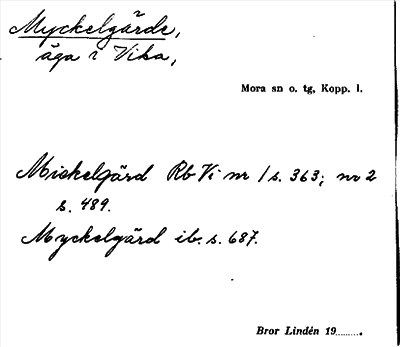 Myckelgärde,
äga i Vika,
Mora sn o. tg, Kopp. l.
Mickelgärd Rb Vi nr 1 s. 363; nr 2
s. 489.
Myckelgärd ib. s. 687.
Bror Lindén 19........